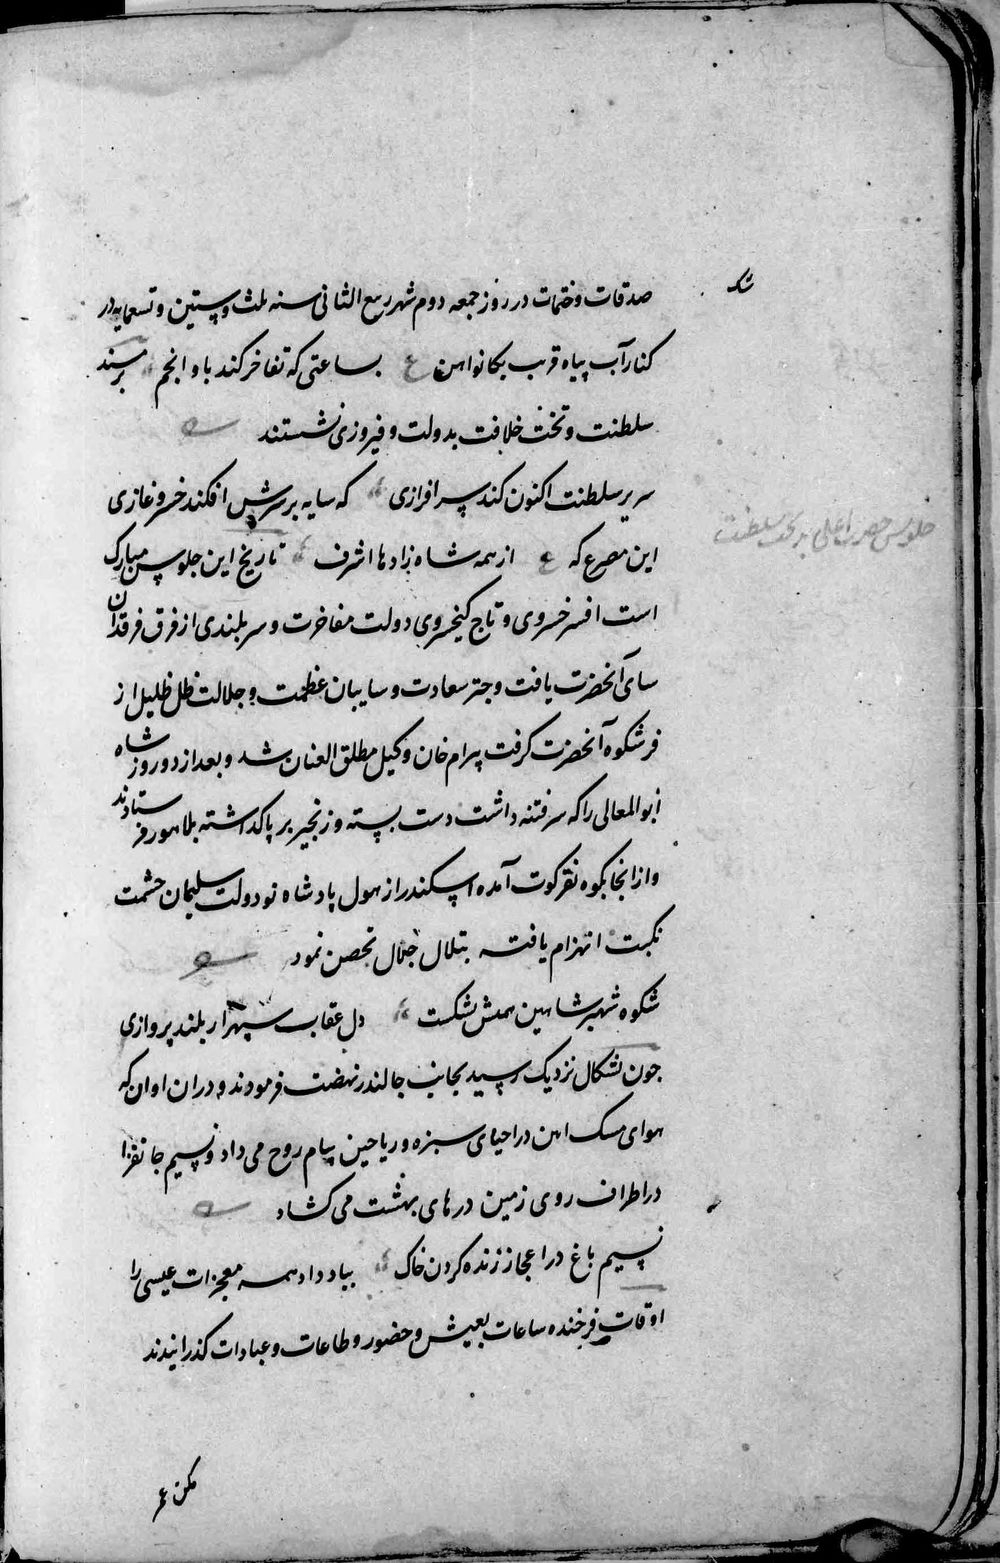 صدقات و ختمات در روز جمعه دوم شهر ربیع الثانی سنه ثلث و ستین و تسعمایه در
کنار آب بیاه قریب بکانواهن ع بساعتی که تفاخر کند باو انجم بر مسند
سلطنت و تخت خلافت بدولت و فیروزی نشستند
سریر سلطنت اکنون کند سرافرازی که سایه بر سرش افکند خسرو غازی
جلوس حضرت اعلی بر تخت سلطنت
این مصرع که ع از همه شاه زادها اشرف تاریخ این جلوس مبارک
است افسر خسروی و تاج کیخسروی دولت مفاخرت و سربلندی از فرق فرقدان
سای آنحضرت یافت و چتر سعادت و سایبان عظمت و جلالت ظل ظلیل از
فر شکوه آنحضرت گرفت بیرام خان وکیل مطلق العنان شد و بعد از دو روز شاه
ابوالمعالی را که سر فتنه داشت دست بسته و زنجیر بر پا گذاشته بلاهور فرستادند
و از انجا بکوه نقرکوت آمده اسکندر از هول پادشاه نو دولت سلیمان حشمت
نکبت انهزام یافته بتلال جلال تحصن نمود
شکوه شهپر شاهین همتش بشکست دل عقاب سپهر از بلند پروازی
جون بشکال نزدیک رسید بجانب جالندر نهضت فرمودند و دران اوان که
هوای مسک اهن در احیای سبزه و ریاحین پیام روح می داد و نسیم جانفزا
در اطراف روی زمین درهای بهشت می کشاد
نسیم باغ در اعجاز زنده کردن خاک بباد داد همه معجزات عیسی را
اوقات فرخنده ساعات بعیش و حضور و طاعات و عبادات گذرانیدند